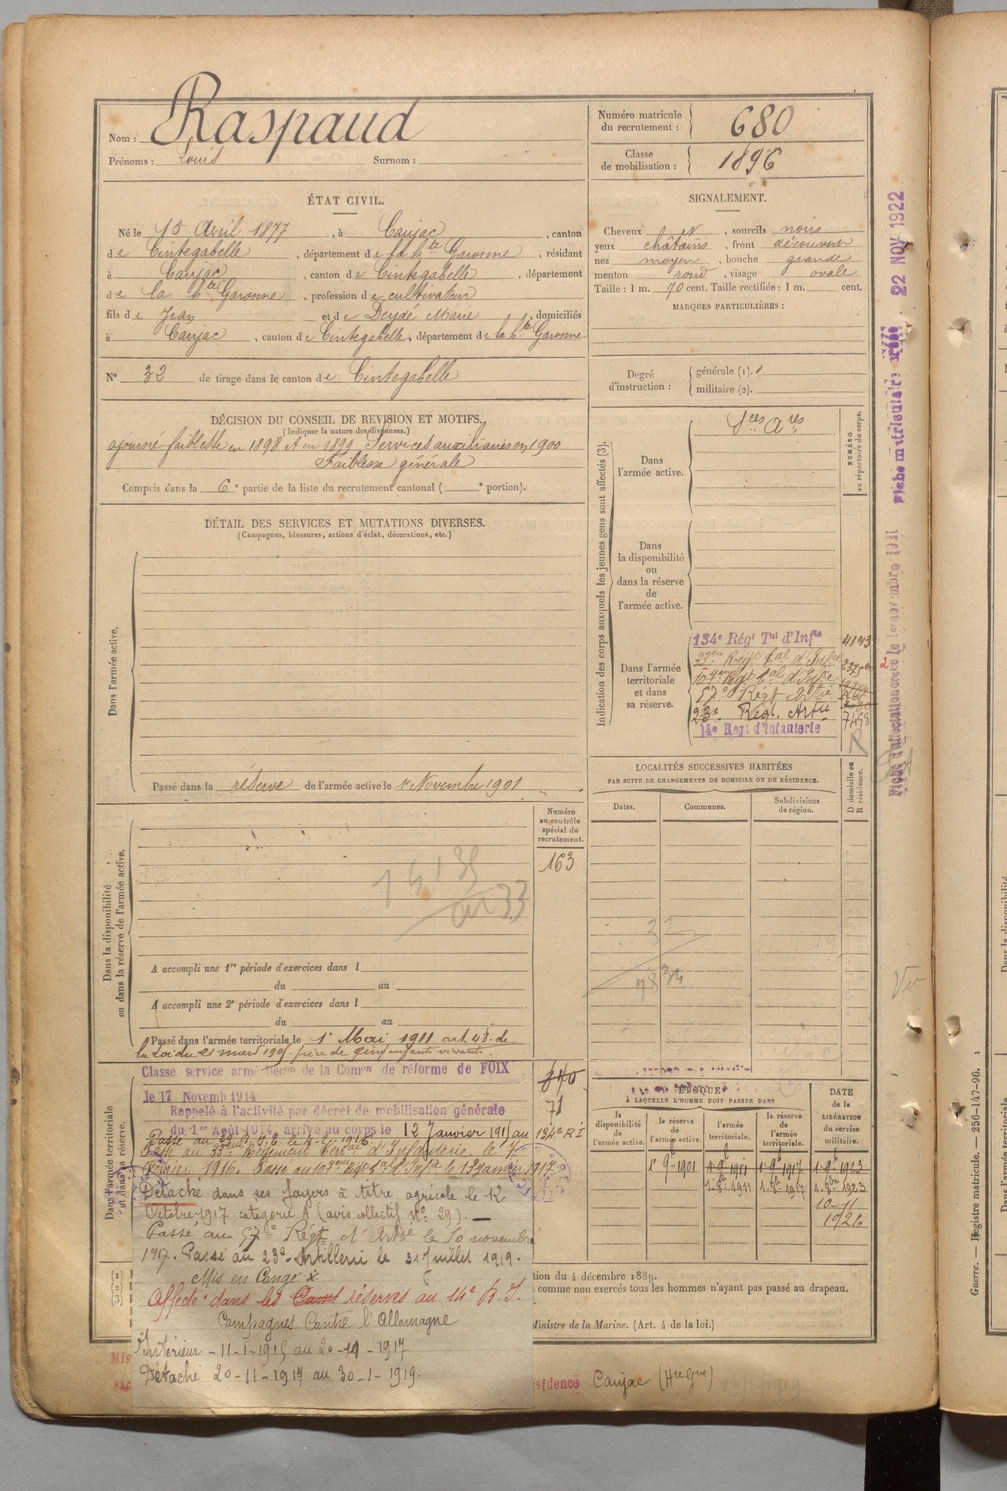 Nom : Raspaud
Prénoms : Louis Surnom :
Numéro matricule du recrutement : 680
Classe de mobilisation : 1896
ÉTAT CIVIL.
Né le 15 Avril 1877, à Caujac, canton
de Cintegabelle, département de la hte Garonne, résidant
à Caujac, canton de Cintegabelle, département
de la hte Garonne, profession de cultivateur
fils de Jean et de Deydé Marie, domiciliés
à Caujac, canton de Cintegabelle, département de la hte Garonne
N° 32 de tirage dans le canton de Cintegabelle
SIGNALEMENT.
Cheveux N, sourcils noirs
yeux châtains, front découvert
nez moyen, bouche grande
menton rond, visage ovale
Taille : 1 m. 70 cent. Taille rectifiée : 1 m. cent.
MARQUES PARTICULIÈRES :
Degré d'instruction : générale (1).
militaire (2).
DÉCISION DU CONSEIL DE REVISION ET MOTIFS.
(Indiquer la nature des dispenses.)
ajourné faiblesse en 1898 et en 1899 Services auxiliaires en 1900
Faiblesse générale
Compris dans la 6e partie de la liste du recrutement cantonal ( e portion).
DÉTAIL DES SERVICES ET MUTATIONS DIVERSES.
(Campagnes, blessures, actions d'éclat, décorations, etc.)
Dans l'armée active.
Passé dans la réserve de l'armée active le 1r Novembre 1901
Indication des corps auxquels les jeunes gens sont affectés (3).
NUMÉRO au répertoire du corps.
Dans l'armée active.
Sces Ares
Dans la disponibilité ou dans la réserve de l'armée active.
Dans l'armée territoriale et dans sa réserve.
134e Régt Tal d'Infie 4193
57e Régt Artie
23e Régt. Artie 7498
14e Régt d'Infanterie
R
LOCALITÉS SUCCESSIVES HABITÉES
PAR SUITE DE CHANGEMENTS DE DOMICILE OU DE RÉSIDENCE.
Dates. Communes. Subdivisions de région.
D domicile ou R résidence.
Dans la disponibilité ou dans la réserve de l'armée active.
Numéro au contrôle spécial du recrutement.
163
A accompli une 1re période d'exercices dans l
du au
A accompli une 2e période d'exercices dans l
du au
Passé dans l'armée territoriale le 1r Mai 1911 art. 48 de
la Loi du 21 mars 1905 père de cinq enfants vivants.
Dans l'armée territoriale et dans sa réserve.
Classe service armé Décon de la Comon de réforme de FOIX
le 17 Novemb 1914
71
Rappelé à l'activité par décret de mobilisation générale
du 1er Août 1914, arrivé au corps le 12 Janvier 1915 au 134e R I
Passé au 33ème Régiment Téral d'Infanterie le 4
Février 1916. Passé au 104ème Rgt tal d'Infie le 13 Janvr 1917.
Détaché dans ses foyers à titre agricole le 12
Octobre 1917 catégorie A (avis collectif No 29).
Passé au 57e Régt d'Artie le 10 novembre
1917. Passé au 23e Artillerie le 31 Juillet 1919.
Mis en Congé
Affecté dans les réserves au 14e R.I.
Campagnes Contre l'Allemagne
Intérieur - 11-1-1915 au 20-11-1917
Détaché 20-11-1917 au 30-1-1919.
ÉPOQUE
À LAQUELLE L'HOMME DOIT PASSER DANS
la disponibilité de l'armée active. la réserve de l'armée active. l'armée territoriale. la réserve de l'armée territoriale.
DATE de la LIBÉRATION du service militaire.
1r 9bre 1901 1r 9bre 1911 1r 9bre 1917 1r 9bre 1923
10-11
1926
tion du 4 décembre 1889.
comme non exercés tous les hommes n'ayant pas passé au drapeau.
Ministre de la Marine. (Art. 4 de la loi.)
sidence Caujac (Hte Gne)
Fiche matriculaire créée 22 NOV 1922
Guerre. — Registre matricule. — 256-147-96.